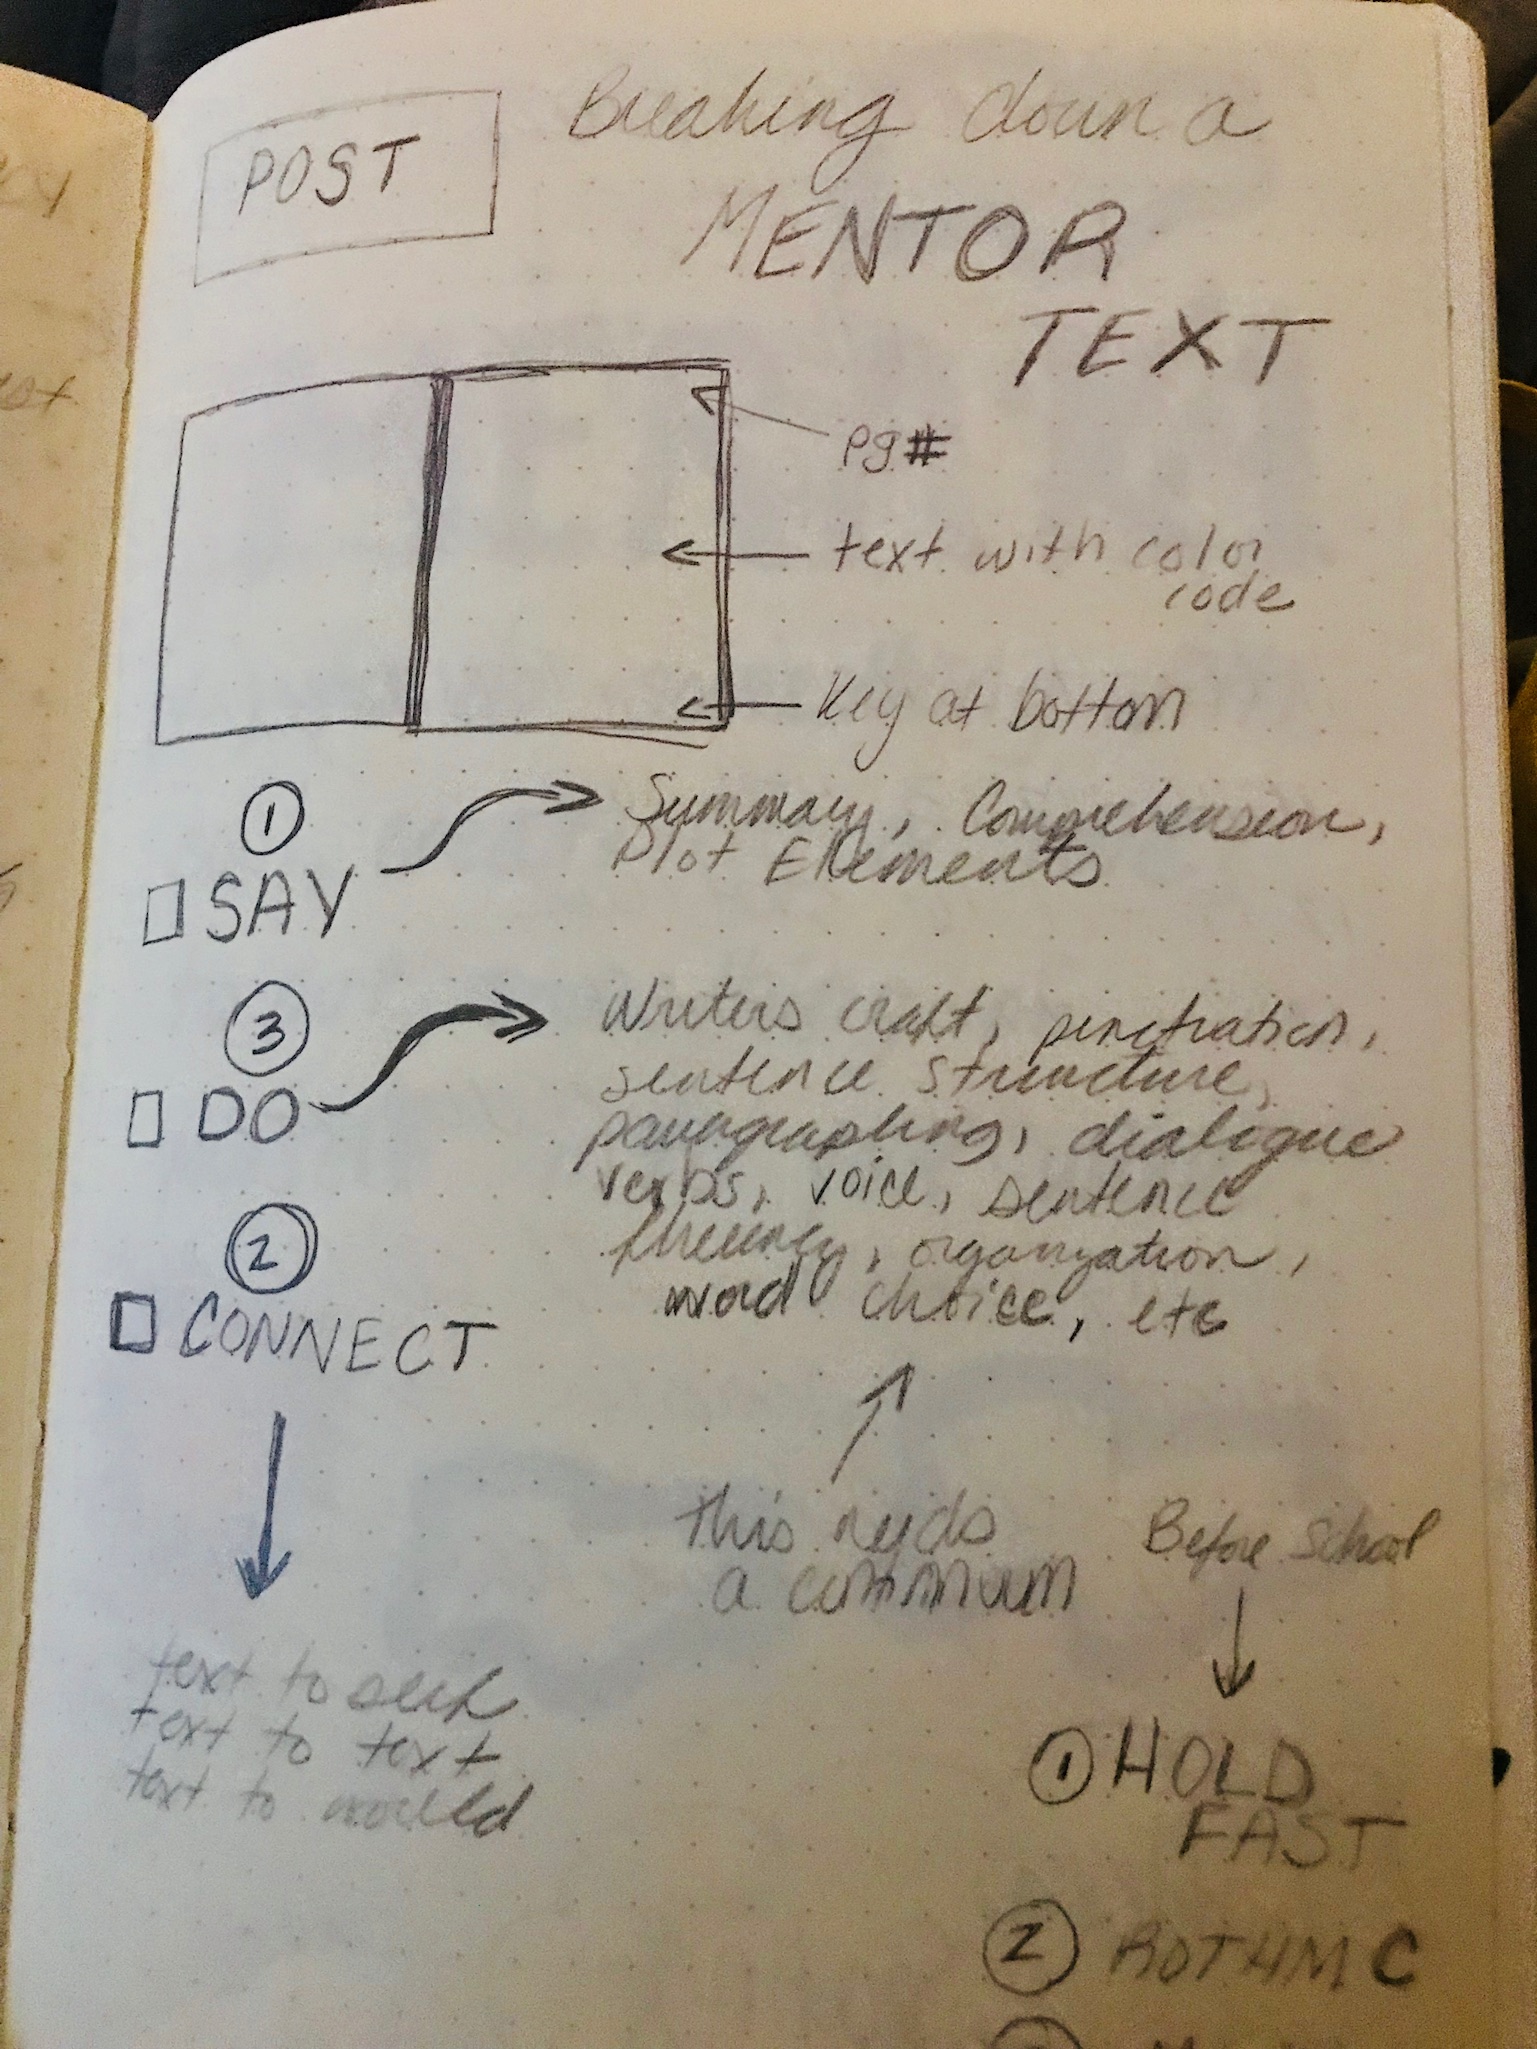 POST
Breaking down a
MENTOR
TEXT
pg#
text with color
code
Key at bottom
1
SAY
Summary, Comprehension,
Plot Elements
3
DO
Writers craft, punctuation,
sentence structure,
paragraphing, dialogue
verbs, voice, sentence
fluency, organization,
word choice, etc
2
CONNECT
this needs
a continuum
Before School
text to self
text to text
text to world
1 HOLD
FAST
2